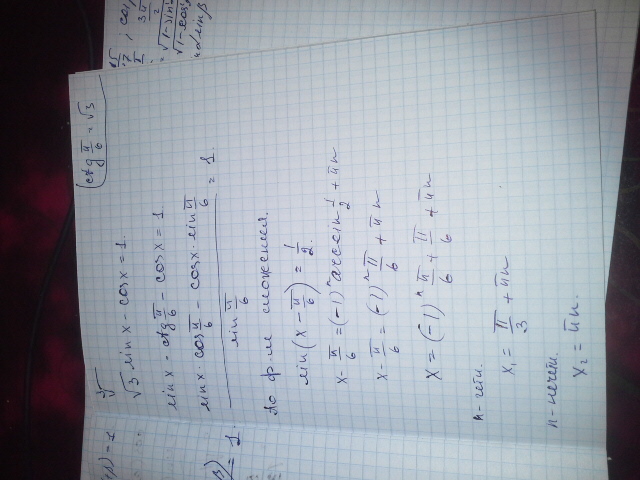 ctg π/6 = √3
√3 sin x - cos x = 1.
sin x · ctg π/6 - cos x = 1.
sin x · cos π/6 - cos x · sin π/6
sin π/6 = 1.
По ф-ле сложения.
sin(x - π/6) = 1/2.
x - π/6 = (-1)ⁿ arcsin 1/2 + πn
x - π/6 = (-1)ⁿ π/6 + πn
x = (-1)ⁿ π/6 + π/6 + πn
n - четн.
x₁ = π/3 + πn
n - нечетн.
x₂ = πn.